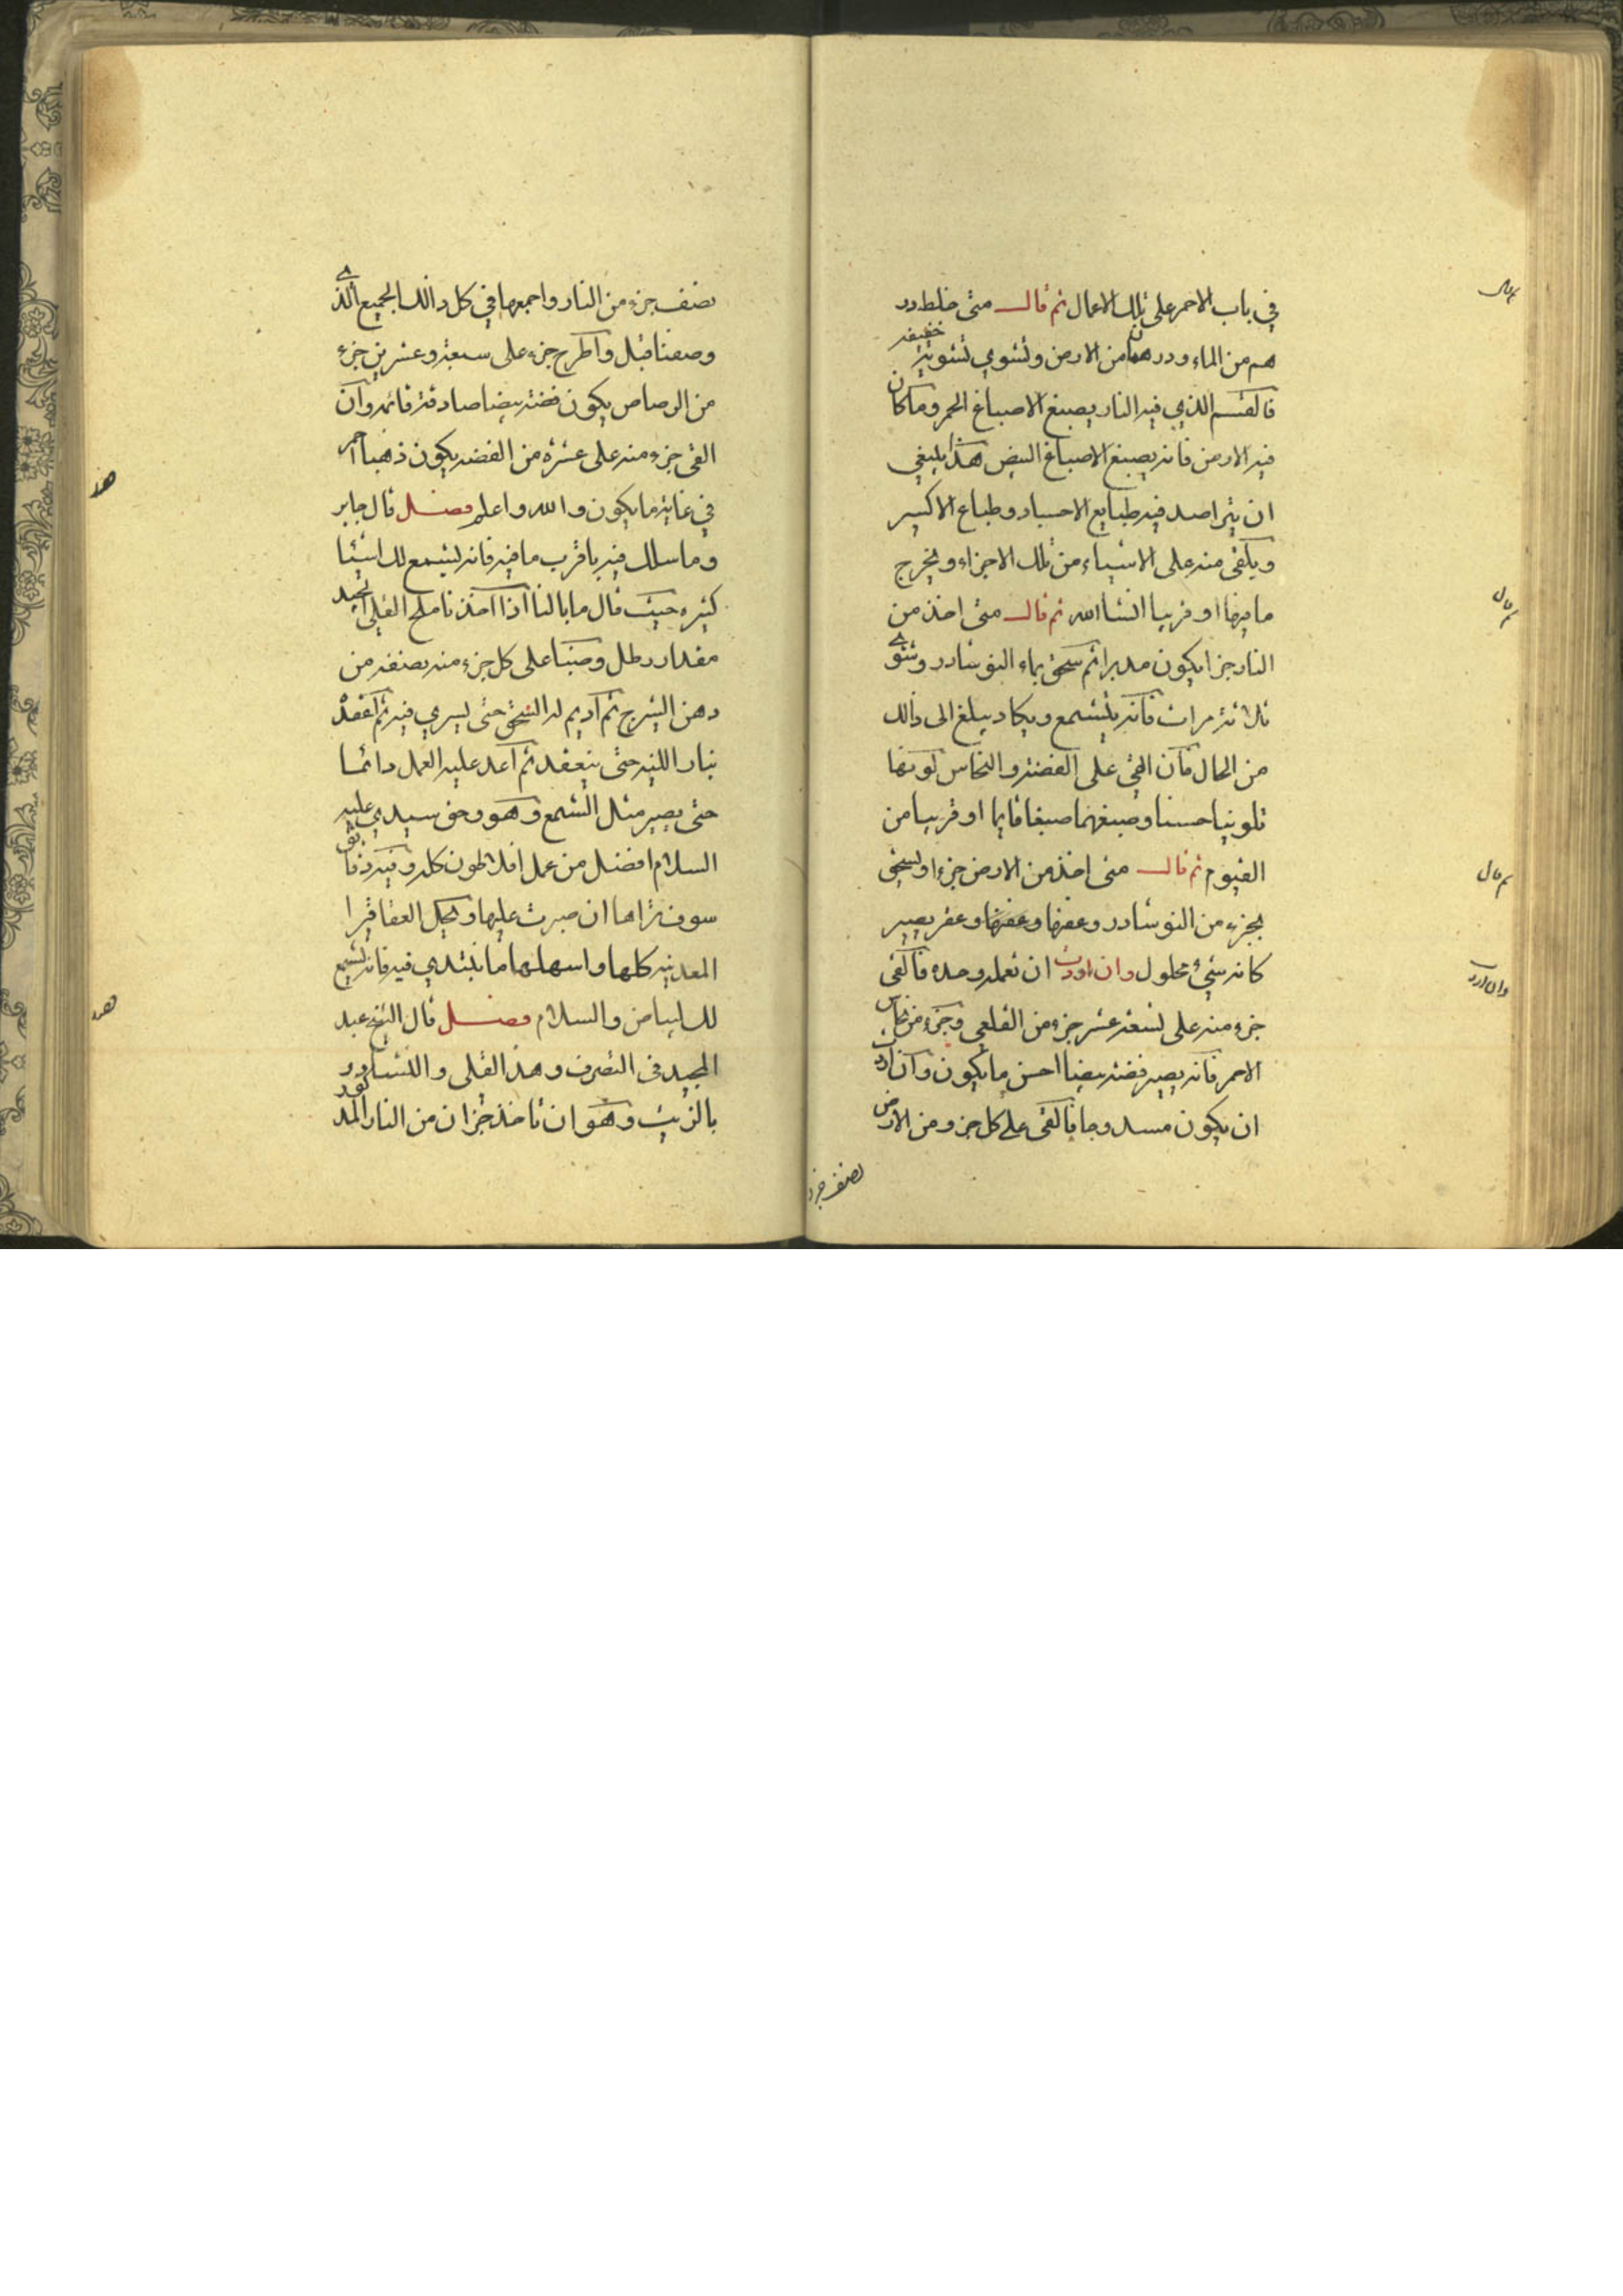 في باب الاحمر على تلك الاعمال ثم قال متى خلط در
هم من الماء ودرهمان من الارض وتشوي تشوية خفيفه
فالقسم الذي فيه النار يصبغ الاصباغ الحمر وما كان
فيه الارض فانه يصبغ الاصباغ البيض هذا ينبغي
ان فيه طبايع الاجساد وطباع الاكسير
ويلقى منه على الاشياء من تلك الاجزاء ويخرج
ما فيها او قريبا انشا الله ثم قال متى اخذ من
النار جزا يكون مدبرا ثم سحق بماء النوشادر وشوي
ثلاثة مرات فانه يتشمع ويكاد يبلغ الى ذالك
من الحال فان القي على الفضة والنحاس لونها
تلوينا حسنا وصبغهما صبغا قايما او قريبا من
القيوم ثم قال متى اخذ من الارض جزءا وسحق
بجزء من النوشادر وعفرها وعفرها وعفر يصير
كانه شيء محلول وان اردت ان تعمله وحده فالقى
جزء منه على تسعة عشر جزء من القلعي وجزء من نحاس
الاحمر فانه يصير فضة بيضا احسن ما يكون وان اردت
ان يكون مسدوجا فالقى على كل جزو من الارض
نصف جزء
ثم قال
ثم قال
ثم قال
وان اردت
نصف جزء من النار واجمعها في كل ذالك الجميع الذي
وصفنا قبل واطرح جزء على سبعة وعشرين جزء
من الرصاص يكون فضة بيضا صادقة قائمه وان
القى جزء منه على عشرة من الفضه يكون ذهبا احمر
في غاية ما يكون والله واعلم فصل قال جابر
وما سلك فيه باقرب ما فيه فانه ليشمع لك اشيئا
كثيره حيث قال ما بالنا اذا اخذنا ملح القلى الجيد
مقدار رطل وصبنا على كل جزء منه نصفه من
دهن الشيرج ثم اديم له السحق حتى يسري فيه ثم اعقده
بنار اللينه حتى ينعقد ثم اعد عليه العمل دائما
حتى يصير مثل الشمع وهو وحق سيدي عليه
السلام افضل من عمل افلاطون كله وفيه
سوف تراها ان صبرت عليها ولكل العقاقيرا
المعدنيه كلها واسهلها ما نبتدي فيه فانه تشمع
للبياض والسلام فصل قال الشيخ عبد
المجيد في التصرف وهذ القلى والنشادر
بالزيت وهو ان تاخذ جزان من النار
هذ
هذ